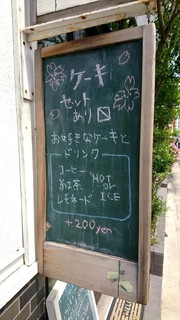 ケーキ
セット
あり
お好きなケーキと
ドリンク
コーヒー
紅茶
レモネード
HOT
or
ICE
+200yen